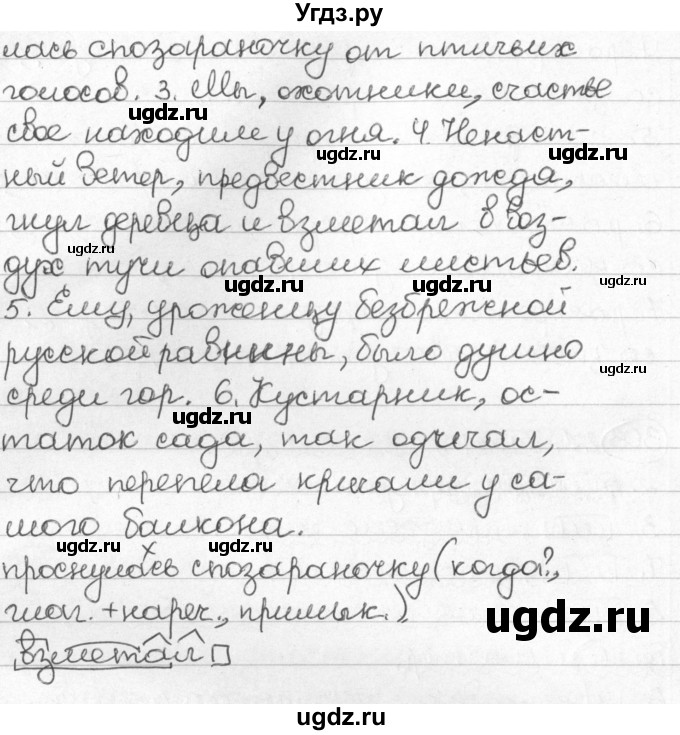 Угдз.ру
лась спозараночку от птичьих
голосов. 3. Мы, охотники, счастье
свое находили у огня. 4. Ненаст-
ный ветер, предвестник дождя,
гнул деревца и взметал в воз-
дух тучи опавших листьев.
5. Ему, уроженцу безбрежной
русской равнины, было душно
среди гор. 6. Кустарник, ос-
таток сада, так одичал,
что перепела кричали у са-
мого балкона.
проснулась спозараночку (когда?,
глаг. + нареч., примык.)
взметал
ugdz.ru
ugdz.ru
ugdz.ru
ugdz.ru
ugdz.ru
ugdz.ru
ugdz.ru
ugdz.ru
ugdz.ru
ugdz.ru
ugdz.ru
ugdz.ru
ugdz.ru
ugdz.ru